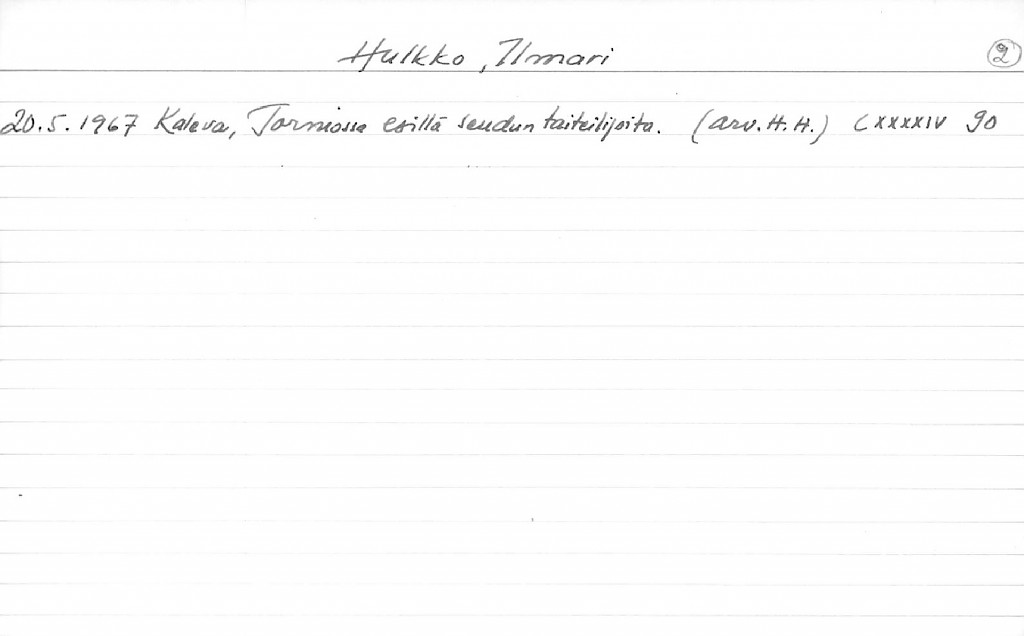 Hulkko, Ilmari 2
20.5.1967 Kaleva, Torniossa esillä seudun taiteilijoita. (arv. H. H.) CXXXXIV 90